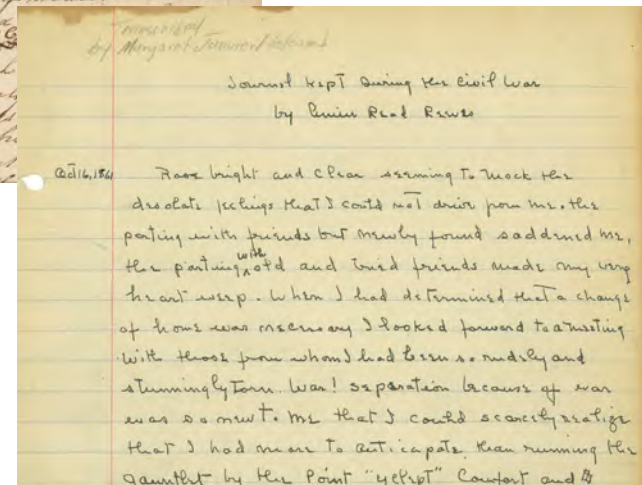 Transcribed
by Margaret
Journal kept During the Civil War
by Read
Oct 16, 1861 Rose bright and clear seeming to mock the
desolate feelings that I could not drive from me. the
parting with friends but newly found saddened me,
the parting with old and tried friends made my very
heart weep. When I had determined that a change
of home was necessary I looked forward to a meeting
with those from whom I had been so rudely and
stunningly torn. War! separation because of war
was so new to me that I could scarcely realize
that I had more to anticapate than running the
gauntlet by the Point "yclept" Comfort and